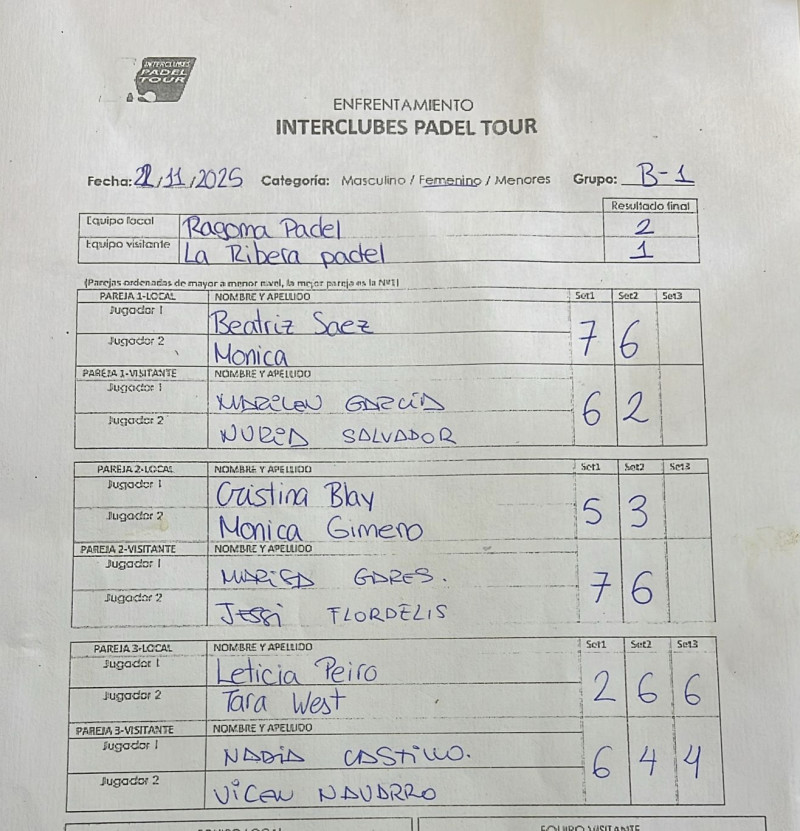 INTERCLUBES
PADEL
TOUR
ENFRENTAMIENTO
INTERCLUBES PADEL TOUR
Fecha: 22/11/2025 Categoría: Masculino / Femenino / Menores Grupo: B-1
Resultado final
Equipo local Ragoma Padel 2
Equipo visitante La Ribera padel 1
(Parejas ordenadas de mayor a menor nivel, la mejor pareja es la Nº1)
PAREJA 1-LOCAL NOMBRE Y APELLIDO Set1 Set2 Set3
Jugador 1 Beatriz Saez 7 6
Jugador 2 Monica
PAREJA 1-VISITANTE NOMBRE Y APELLIDO
Jugador 1 MARILEN GARCIA 6 2
Jugador 2 NURIA SALVADOR
PAREJA 2-LOCAL NOMBRE Y APELLIDO Set1 Set2 Set3
Jugador 1 Cristina Blay 5 3
Jugador 2 Monica Gimeno
PAREJA 2-VISITANTE NOMBRE Y APELLIDO
Jugador 1 MARISA GARES. 7 6
Jugador 2 JESSI FLORDELIS
PAREJA 3-LOCAL NOMBRE Y APELLIDO Set1 Set2 Set3
Jugador 1 Leticia Peiro 2 6 6
Jugador 2 Tara West
PAREJA 3-VISITANTE NOMBRE Y APELLIDO
Jugador 1 NADIA CASTILLO. 6 4 4
Jugador 2 VICEN NAVARRO
EQUIPO LOCAL EQUIPO VISITANTE